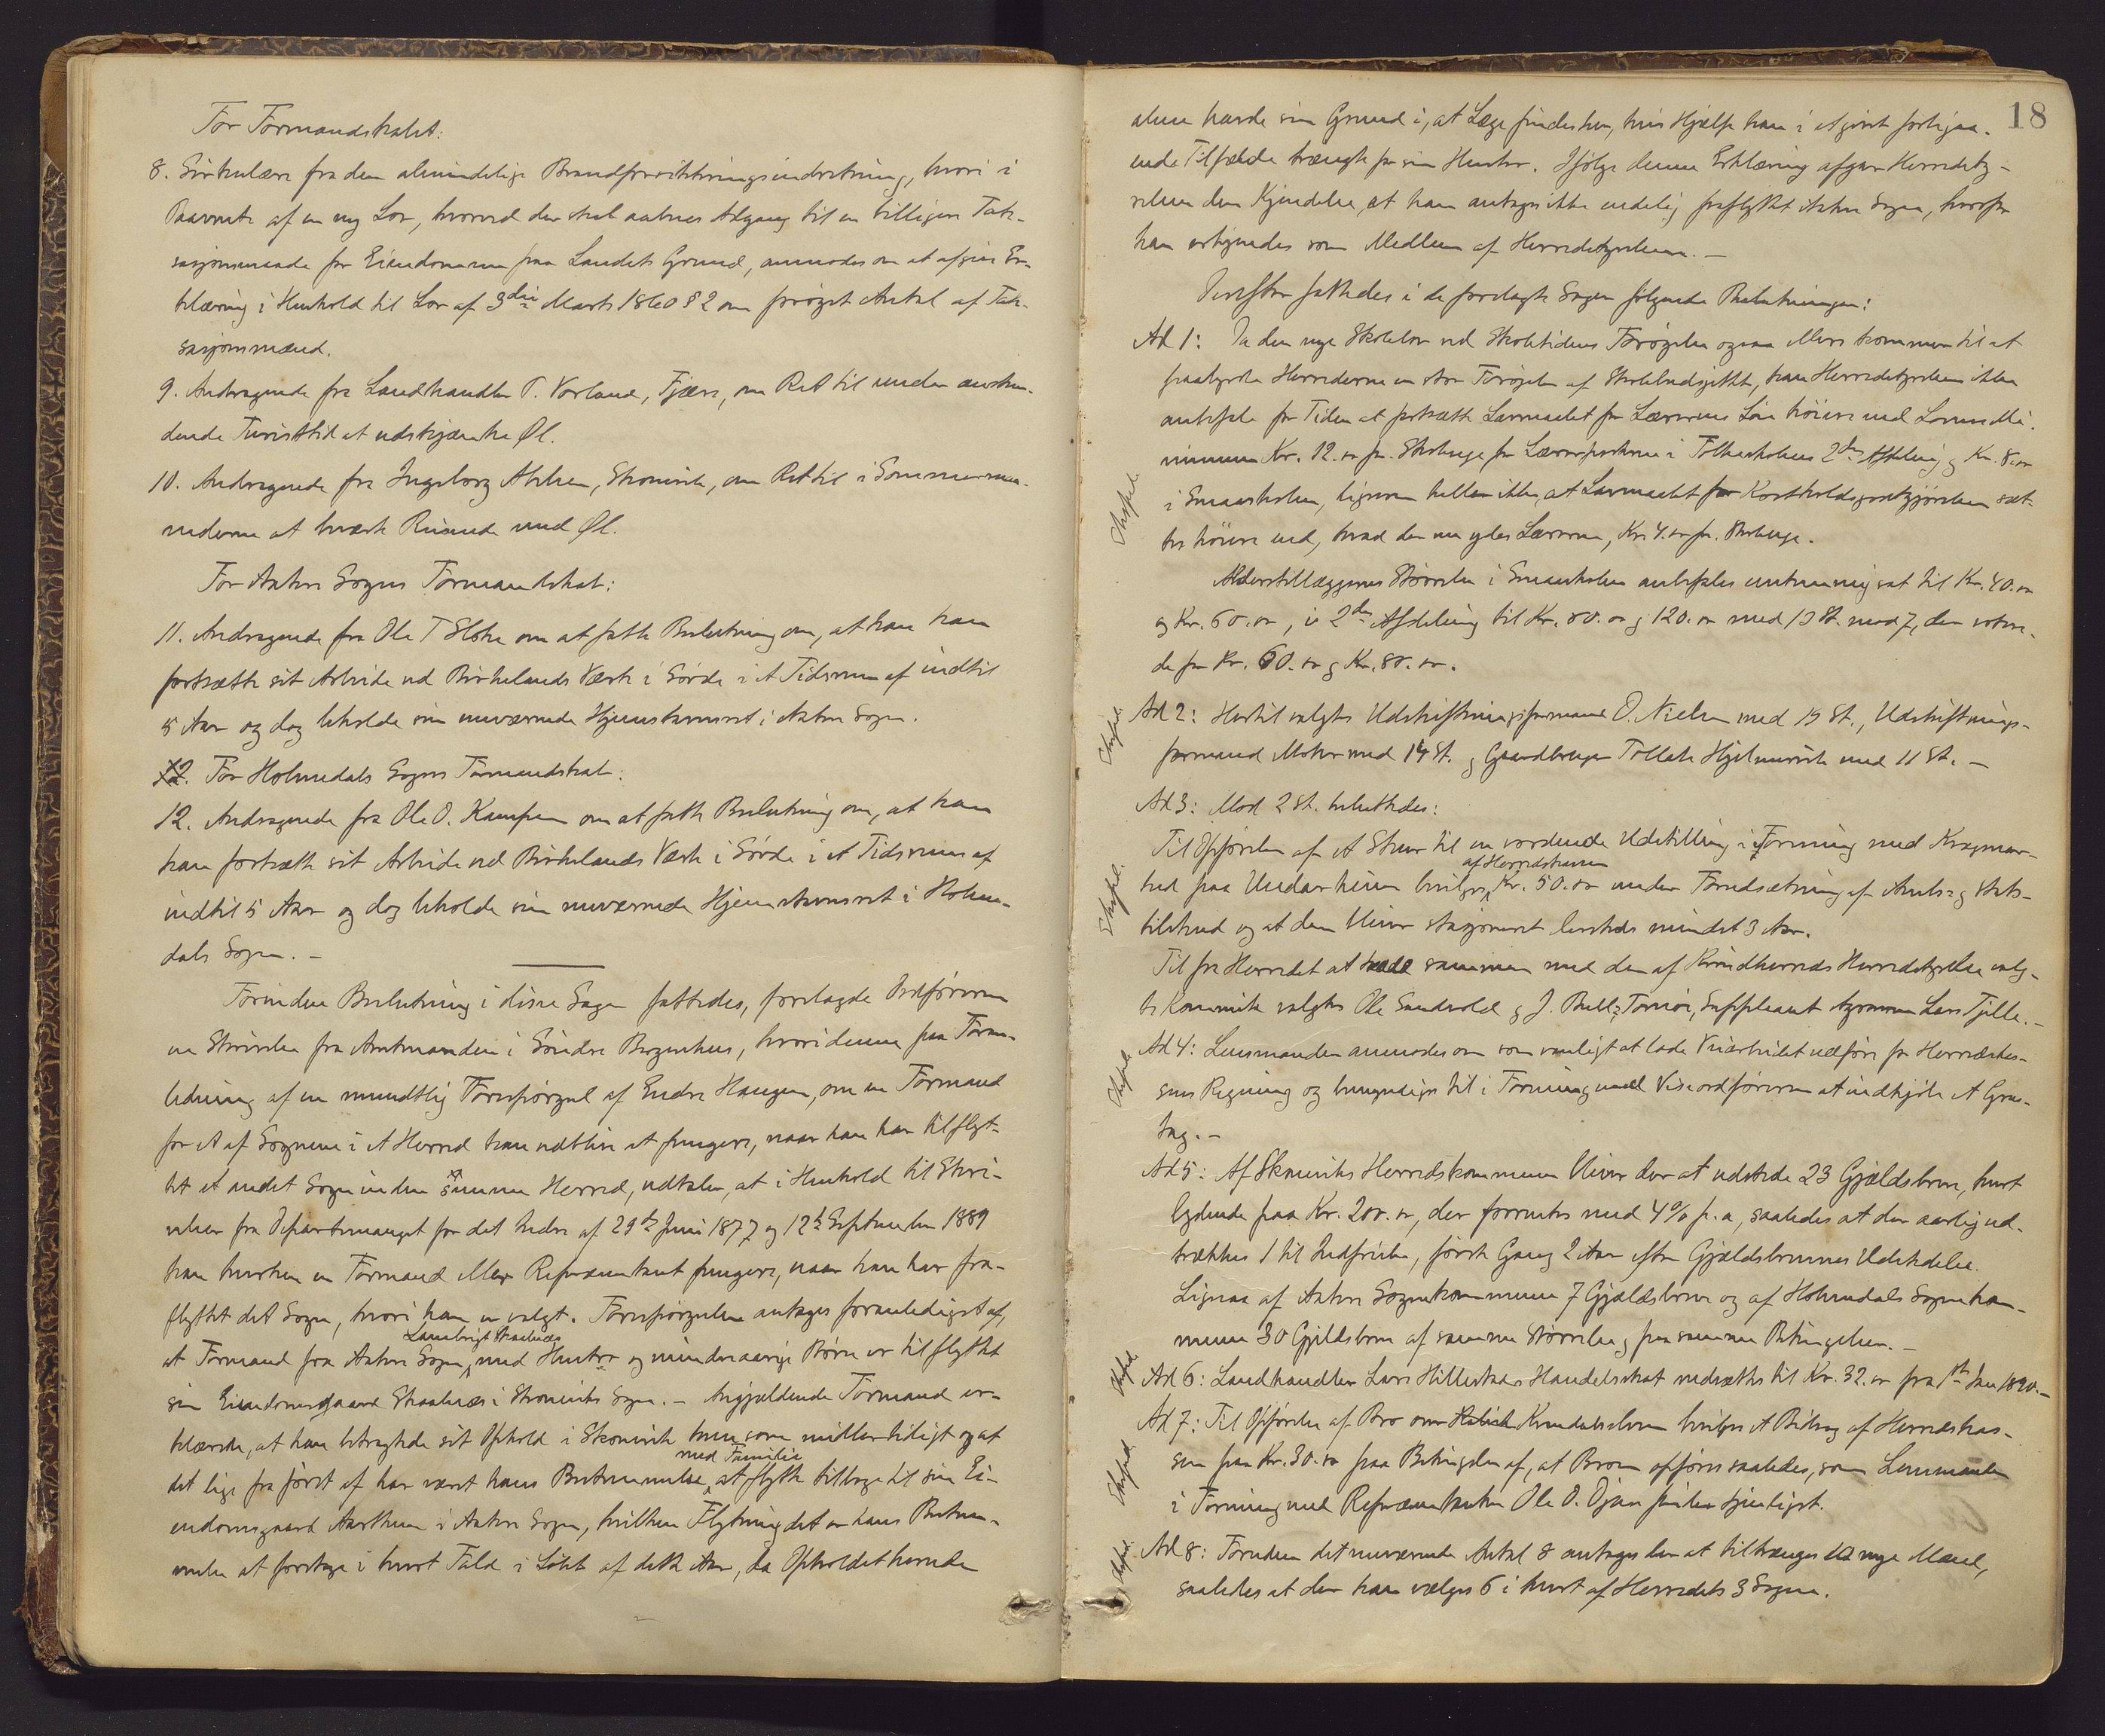 For Formandskabet:
8. Cirkulære fra den almindelige Brandforsikkringsindretning, hvori i
Paavente af en ny Lov, hvorved der skal aabnes Adgang til en billigere Tak-
sasjonsmaade for Eiendommene paa Landets Grund, anmodes om at afgive Er-
klæring i Henhold til Lov af 3die Marts 1860 § 2 om forøget Antal af Tak-
sasjonsmænd.
9. Andragende fra Landhandler T. Vorland, Fjære, om Ret til under
dende Turisttid at udskjænke Øl.
10. Andragende fra Ingeborg Skonevik, om Ret til i Sommermaa-
nederne at Reisende med Øl.
For Aakre Sogns Formandskab:
11. Andragende fra Ole T om at fatte Beslutning om, at han kan
fortsætte sit Arbeide ved Birkelands Værk i Søvde i et Tidsrum af indtil
5 Aar og dog beholde sin nuværende Hjemstavnsret i Aakre Sogn.
12. For Holmedals Sogns Formandskab:
12. Andragende fra Ole O. Kampen om at fatte Beslutning om, at han
kan fortsætte sit Arbeide ved Birkelands Værk i Søvde i et Tidsrum af
indtil 5 Aar og dog beholde sin nuværende Hjemstavnsret i Holme-
dals Sogn. —
Førinden Beslutning i disse Sager fattedes, forelagde Ordføreren
en Skrivelse fra Amtmanden i Søndre Bergenhus, hvori denne paa Foran-
ledning af en mundtlig Forespørgsel af Endre Haugen, om en Formand
for et af Sognene i et Herred kan vedblive at fungere, naar han har tilflyt-
tet et andet Sogn inden samme Herred, udtaler, at i Henhold til Skri-
velser fra Departementet for det Indre af 29de Juni 1877 og 12te September 1889
kan hverken en Formand eller Repræsentant fungere, naar han har fra-
flyttet det Sogn, hvori han er valgt. Forespørgselen antages foranlediget af,
at Formand fra Aakre Sogn, Lambrigt Skaalnæs med Hustru og mindreaarige Børn er tilflyttet
sin Eiendomsgaard Skaalnæs i Skonevik Sogn. — Angjældende Formand er-
klærede, at han betragtede sit Ophold i Skonevik kun som midlertidigt og at
det lige fra først af har været hans Bestemmelse med Familie at flytte tilbage til sin Ei-
endomsgaard i Aakre Sogn, hvilken Flytning det er hans Bestem-
melse at foretage i hvert Fald i Løbet af dette Aar, da Opholdet herude
18
alene havde sin Grund i, at Læge findes her, hvis Hjælp han i et givet forliggen-
ende Tilfælde trængte for sin Hustru. Ifølge denne Erklæring afgav Herredsty-
relsen den Kjendelse, at han antages ikke endelig fraflyttet Aakre Sogn, hvorfor
han som Medlem af Herredstyrelsen. —
Derefter fattedes i de forelagte Sager følgende Beslutninger:
Ad 1: Da den nye Skolelov ved Skoletidens Forøgelse ogsaa ellers kommer til at
paabyrde Herrederne en stor Forøgelse af Skolebudgettet, kan Herredstyrelsen ikke
anbefale for Tiden at fortsætte Lavmaalet for Lærernes Løn høiere end Lovens Mi-
nimum Kr. 12.00 pr. Skoleuge for Lærerposterne i Folkeskolens 2den Afdeling og Kr. 8.00
i Smaaskolen, ligesom heller ikke, at Lavmaalet for Kostholdsgodtgjørelsen sæt-
tes høiere end, hvad der nu ydes Lærerne, Kr. 4.00 pr. Skoleuge.
Alderstillæggenes Størrelse i Smaaskolen anbefales enstemmig sat til Kr. 40.00
og Kr. 60.00, i 2den Afdeling til Kr. 80.00 og 120.00 med 13 St. mod 7, der voter-
de for Kr. 60.00 og Kr. 80.00.
Ad 2: Hertil valgtes Udskiftningsformand O. Nielsen med 15 St., Udskiftnings-
formand med 14 St. og Gaardbruger Tollak Hjelmervik med 11 St. —
Ad 3: Mod 2 St. besluttedes:
Til Opførelse af et Skur til en vordende Udstilling i Forening med
hed paa Undarheim bevilges af Herredskassen Kr. 50.00 under Forudsætning af Amts- og Stats-
tilskud og at den bliver stasjoneret dersteds mindst 3 Aar.
Til fra Herredet at træde sammen med den af Kvindherreds Herredstyrelse valg-
te Komite valgtes Ole Sandvold og J. Suppleant Lars Tjelle. —
Ad 4: Lensmanden anmodes om som vanligt at lade Veiarbeidet udføre for Herredskas-
sens Regning og bemyndiges til i Forening med Viseordføreren at indkjøbe et Grus-
tag. —
Ad 5: Af Skoneviks Herredskommune bliver der at udstede 23 Gjældsbreve, hvert
lydende paa Kr. 200.00, der forrentes med 4% p.a., saaledes at der aarlig ud-
trækkes 1 til Indfrielse, første Gang 2 Aar efter Gjældsbrevenes Udstedelse.
Ligesaa af Aakre Sognekommune 7 Gjældsbreve og af Holmedals Sognekom-
mune 30 Gjældsbreve af samme Størrelse og paa samme Betingelser. —
Ad 6: Landhandler Lars Hillestads Handelsskat nedsættes til Kr. 32.00 fra 1ste Jan 1890. —
Ad 7: Til Opførelse af Bro over bevilges et Bidrag af Herredskas-
sen paa Kr. 30.00 paa Betingelse af, at Broen opføres saaledes, som Lensmanden
i Forening med Repræsentanten Ole O. finder tjenligst.
Ad 8: Foruden det nuværende Antal 8 antages der at tiltrænges 10 nye Mænd,
saaledes at der kan vælges 6 i hvert af Herredets 3 Sogne.